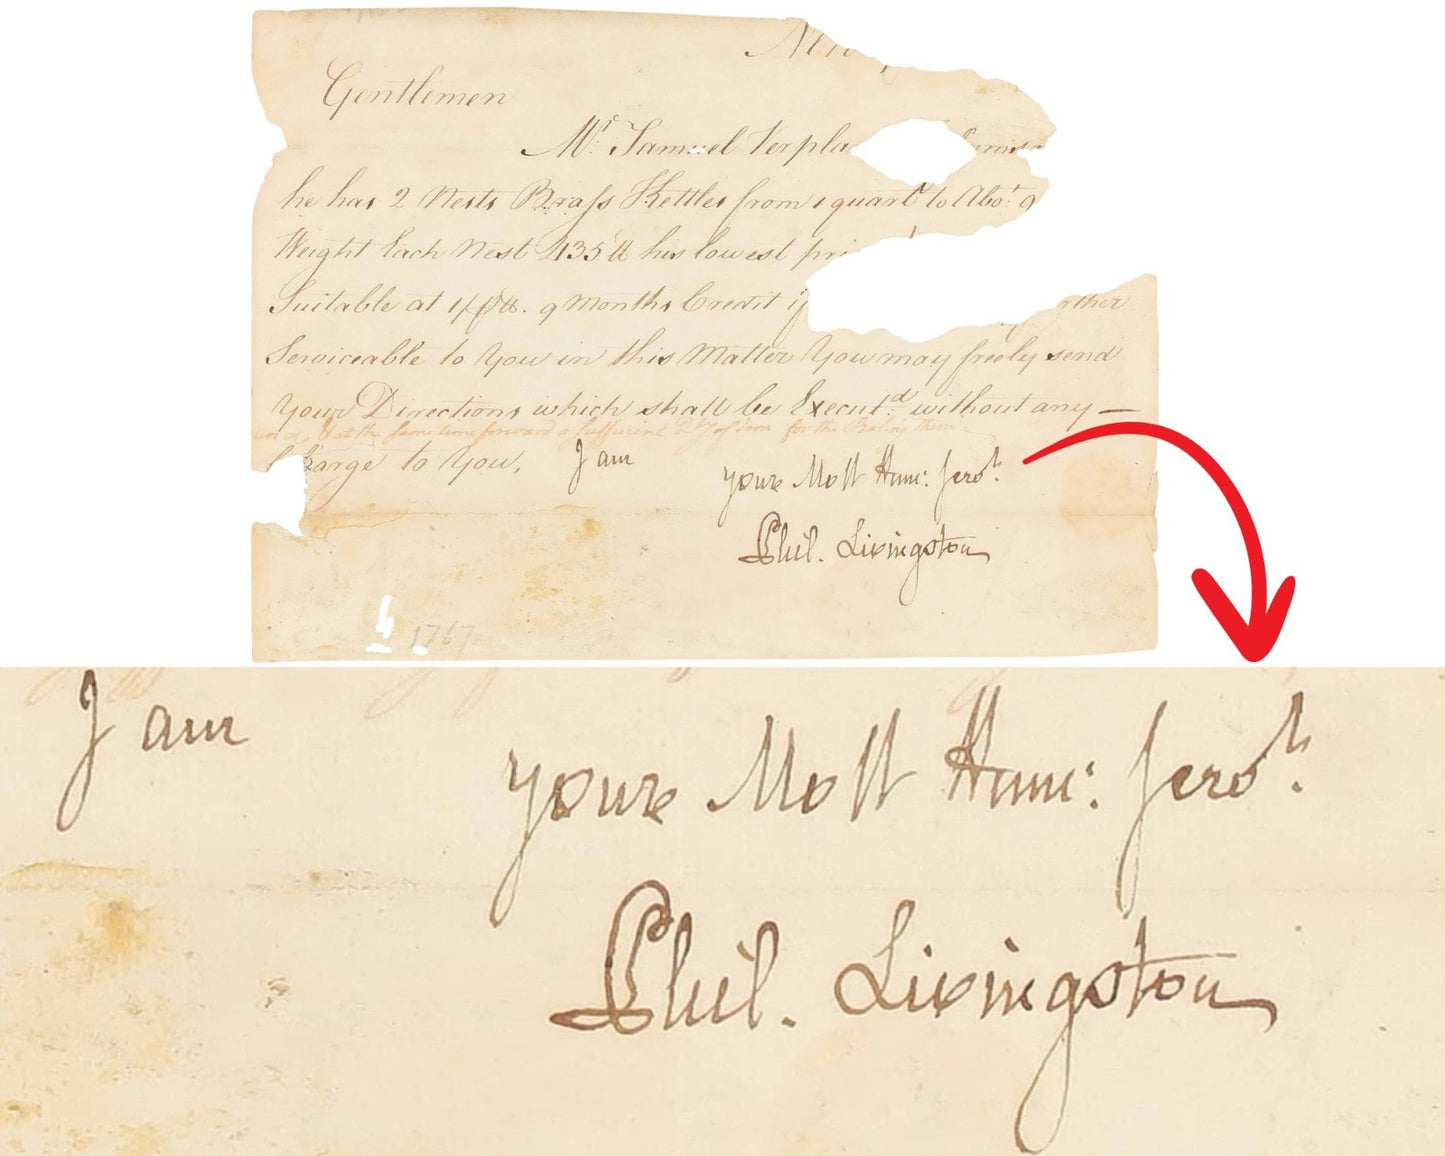 Gentlemen
Mr. Samuel Verpla
he has 2 Nests Brass Kettles from 1 quart to Abot. 9
Weight Each Nest 135 lb his lowest pri
Suitable at 1/ lb. 9 Months Credit if rther
Serviceable to You in this Matter You may freely send
Your Directions which shall be Execut.d without any —
& at the same time forward a sufficient Qty of Iron for the Baling them
Charge to You, I am
your Most Hum: Servt.
Phil. Livingston
1767
I am
your Most Hum: Servt.
Phil. Livingston